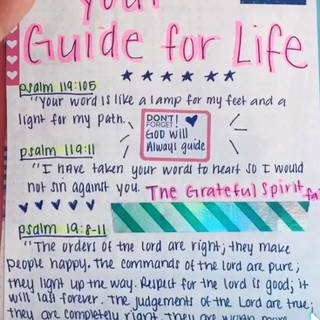 Your
Guide for Life
psalm 119:105
"Your word is like a lamp for my feet and a
light for my path.
DON'T
FORGET!
GOD will
Always guide
psalm 119:11
"I have taken your words to heart so I would
not sin against you. The Grateful Spirit
psalm 19:8-11
"The orders of the lord are right; they make
people happy. The commands of the lord are pure;
they light up the way. Respect for the lord is good; it
will last forever. The judgements of the Lord are true;
they are completely right. They are worth more